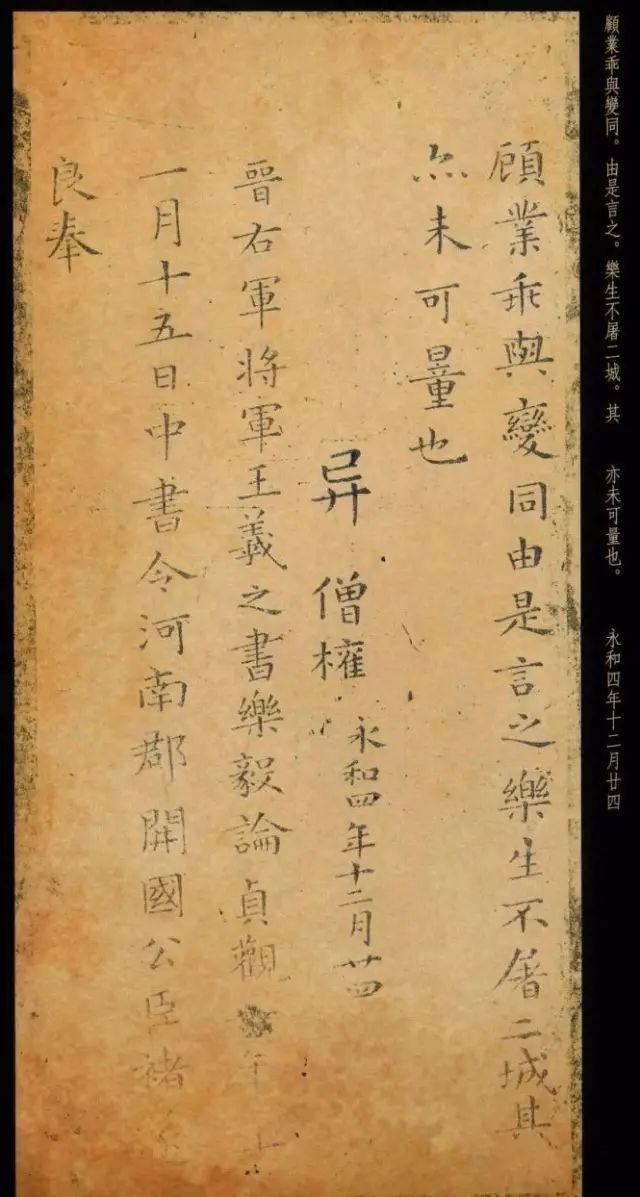 顧業乖與變同。由是言之。樂生不屠二城。其 亦未可量也。 永和四年十二月廿四
顧業乖與變同由是言之樂生不屠二城其
亦未可量也
异 僧權
永和四年十二月廿四
晉右軍將軍王羲之書樂毅論貞觀 年十
一月十五日中書令河南郡開國公臣褚
良奉